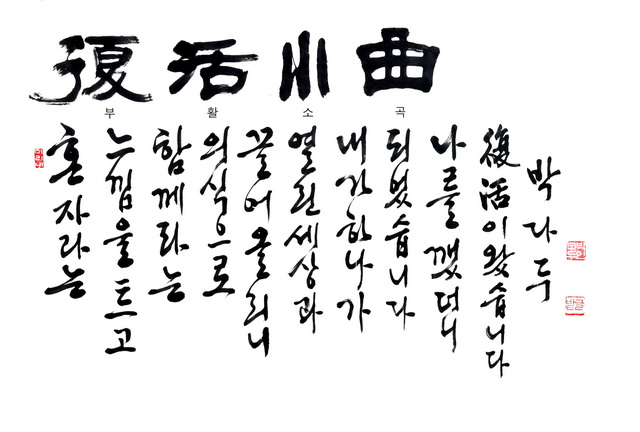 復活小曲
부 활 소 곡
혼자라는
느낌을 트고
함께라는
의식으로
끌어올리니
열린세상과
내가하나가
되었습니다
나를깼더니
復活이왔습니다
박다두